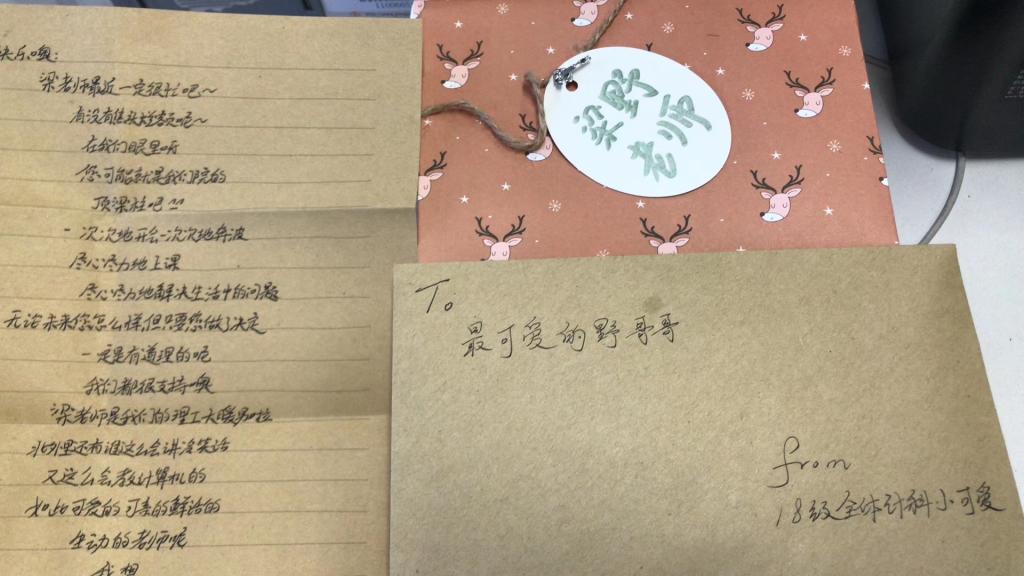 快乐噢:
梁老师最近一定很忙吧~
有没有焦头烂额呢~
在我们眼里呀
您可能就是我们院的
顶梁柱吧
一次次地开会一次次地奔波
尽心尽力地上课
尽心尽力地解决生活中的问题
无论未来您怎么样,但只要您做了决定
一定是有道理的呢
我们都很支持噢
梁老师是我们的理工大暖男啦
还有谁这么会讲冷笑话
又这么会教计算机的
如此可爱的可亲的鲜活的
生动的老师呢
我想
梁野
老师
To
最可爱的野哥哥
from
18级全体计科小可爱